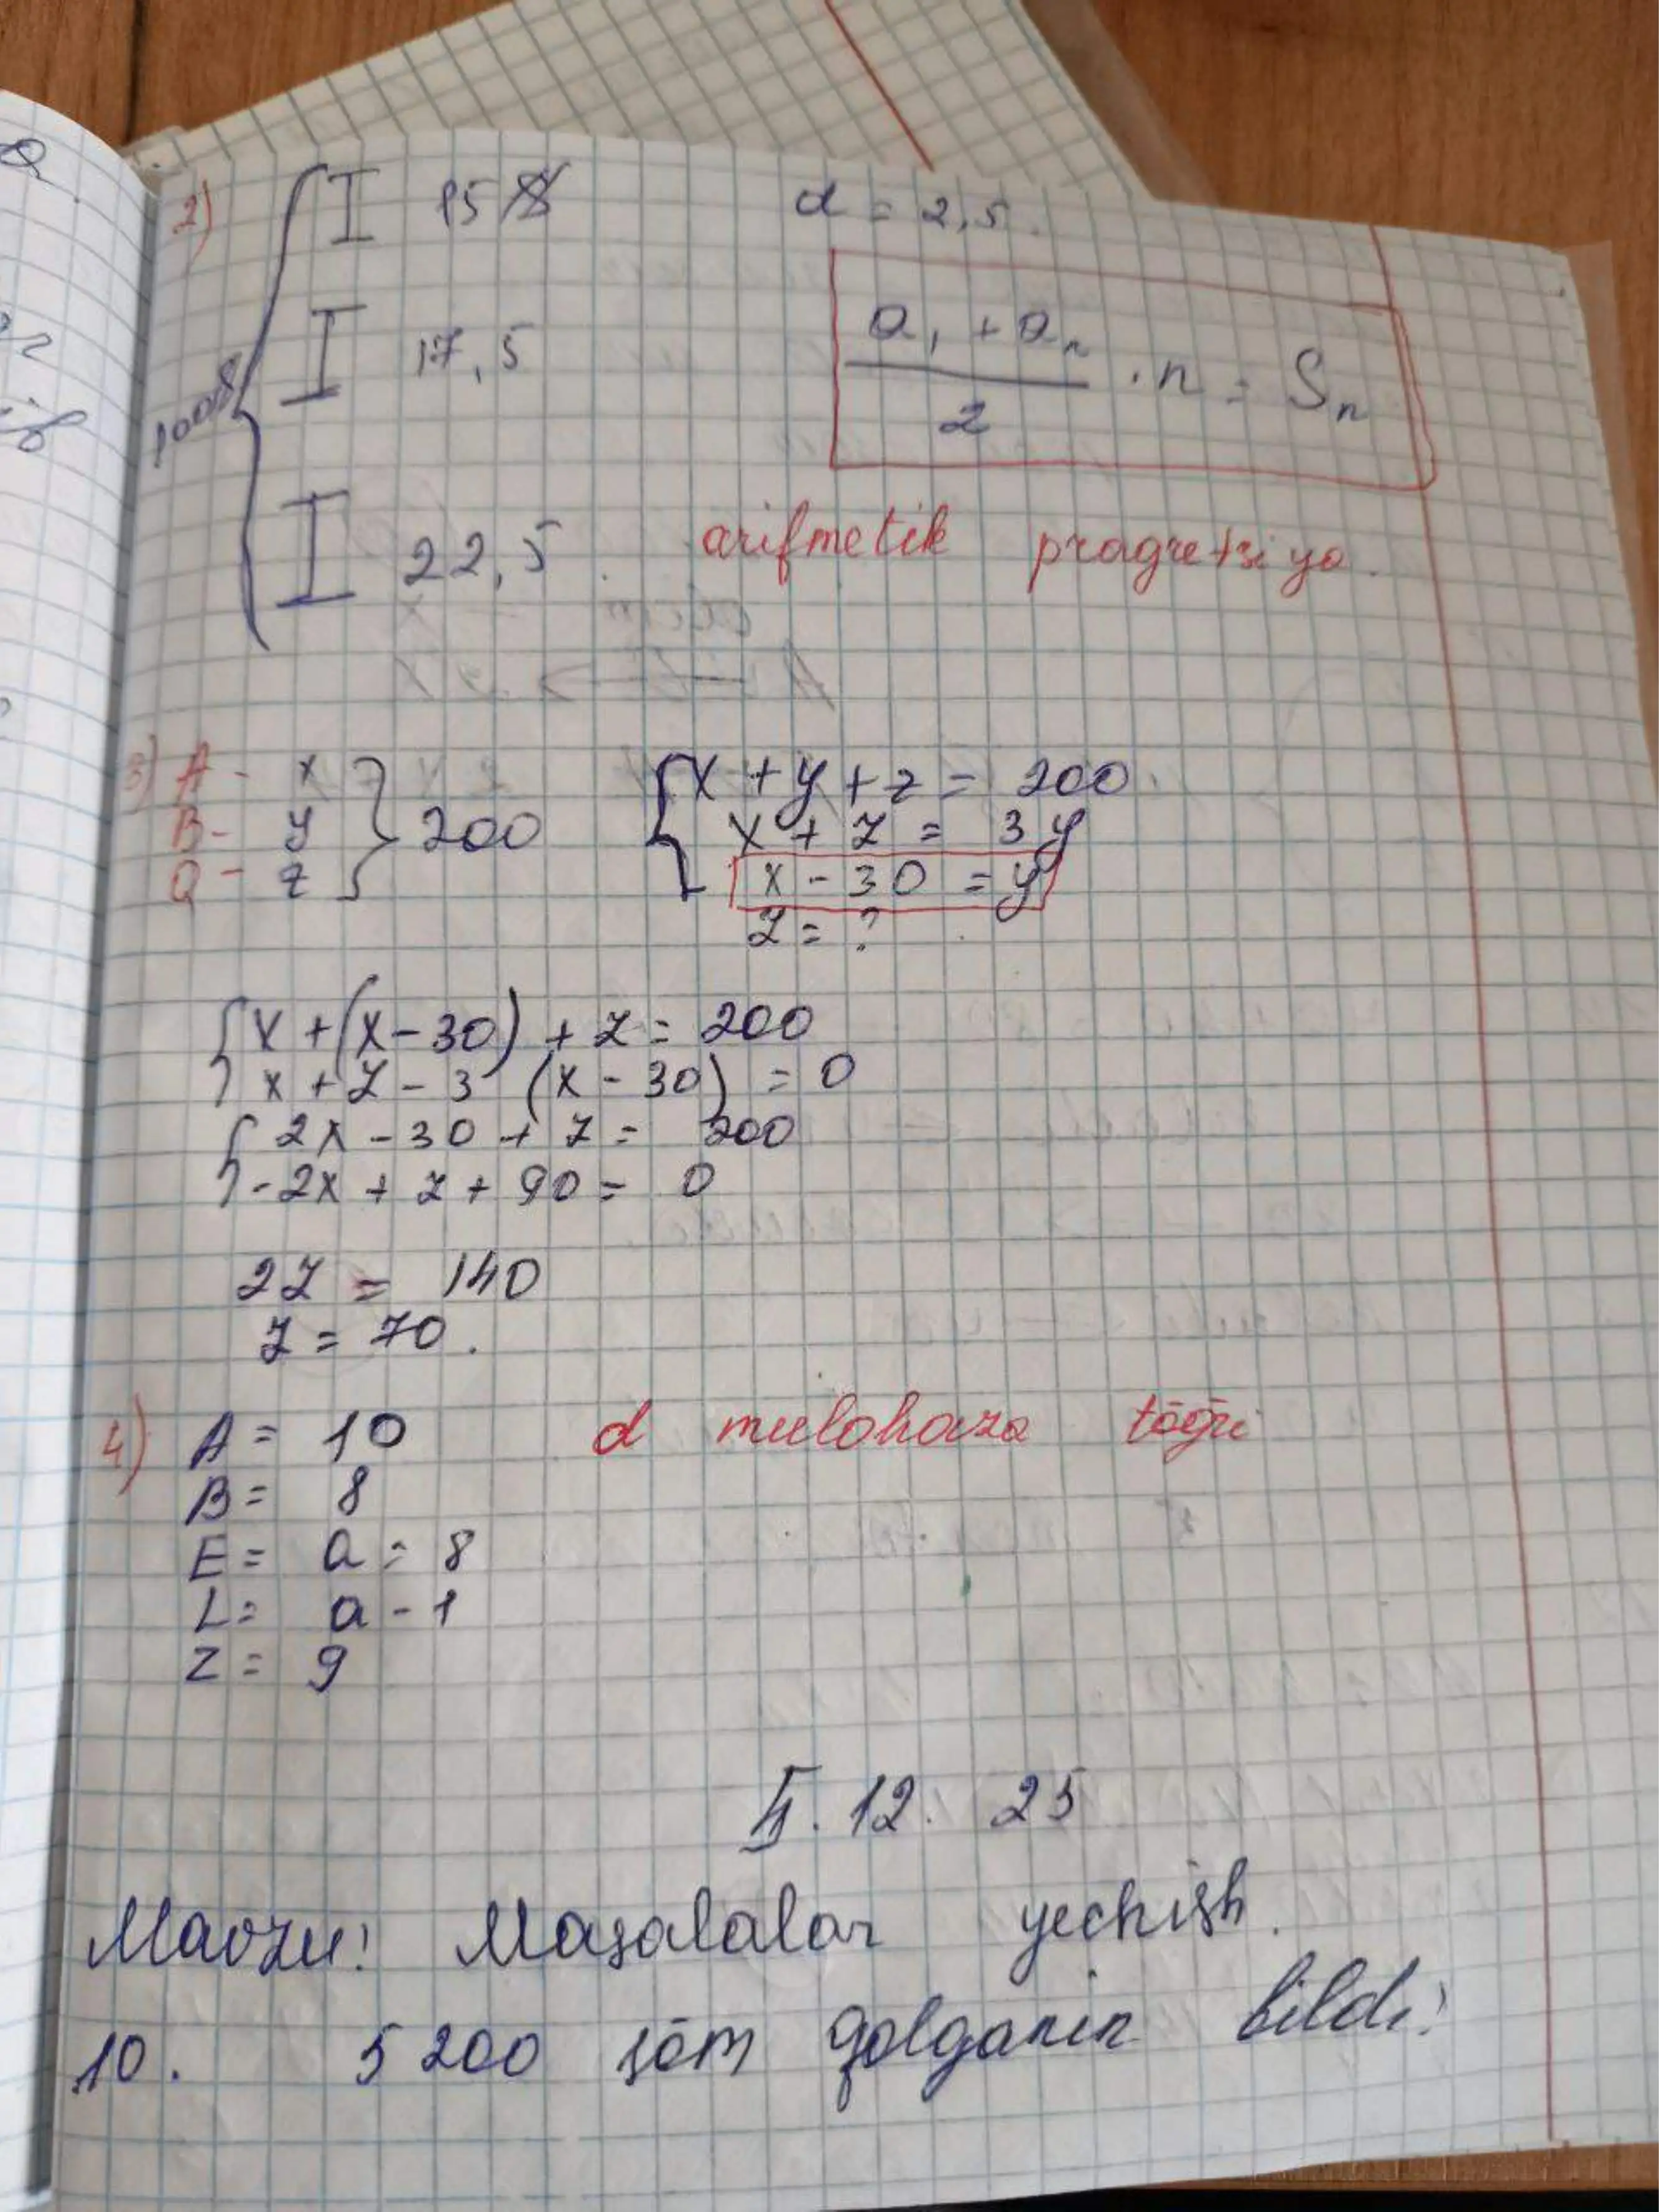 2) I 15 d = 2,5.
I 17,5
I 22,5.
a₁ + aₙ / 2 · n = Sₙ
arifmetik pragretsiya.
3) A - x
B - y
Q - z
200
x + y + z = 200
x + z = 3y
x - 30 = y
z = ?
x + (x - 30) + z = 200
x + z - 3 (x - 30) = 0
2x - 30 + z = 200
-2x + z + 90 = 0
2z = 140
z = 70.
4) A = 10 d mulohaza tōğri
B = 8
E = a = 8
L = a - 1
Z = 9
12. 25
Mavzu: Masalalar yechish.
10. 5 200 sōm qolganin bildi: